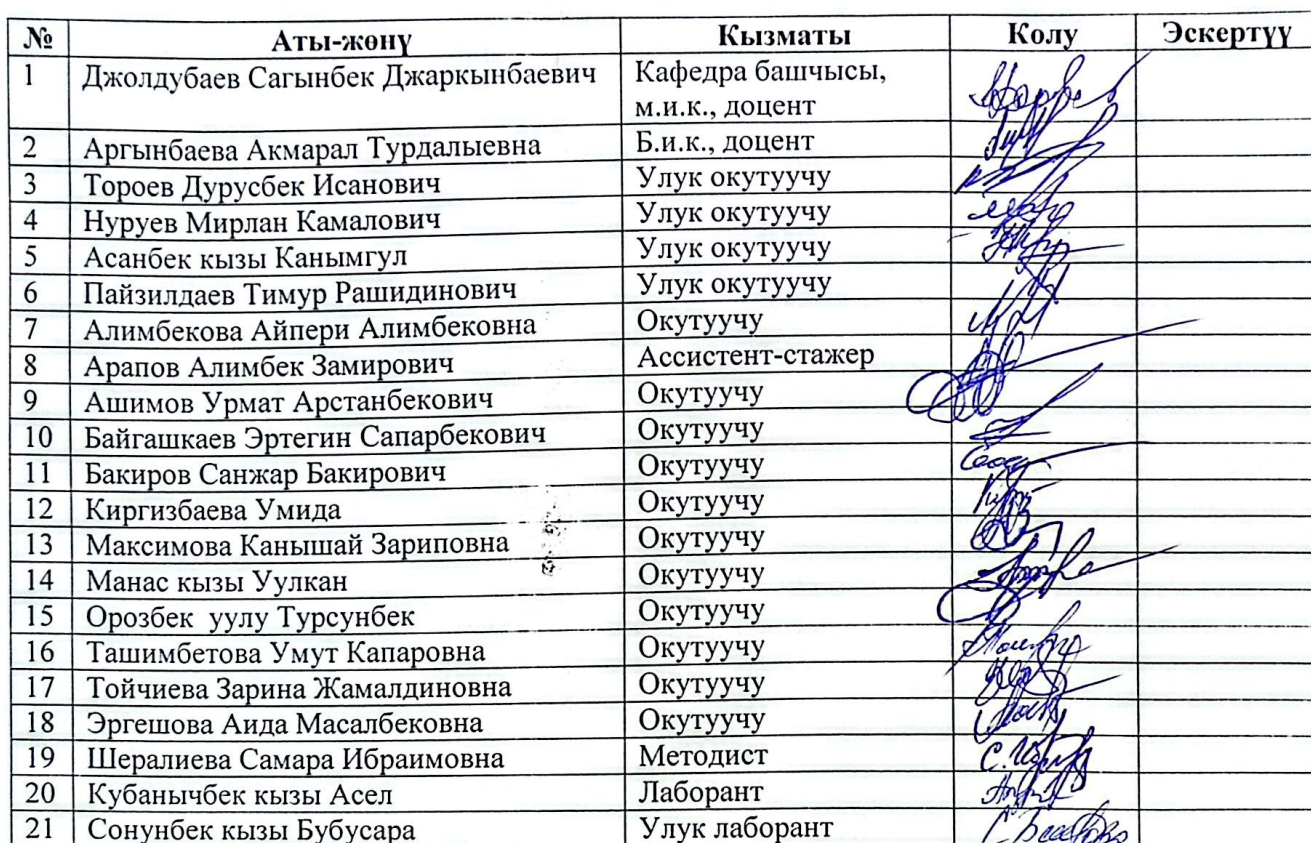 № Аты-жөнү Кызматы Колу Эскертүү
1 Джолдубаев Сагынбек Джаркынбаевич Кафедра башчысы,
м.и.к., доцент
2 Аргынбаева Акмарал Турдалыевна Б.и.к., доцент
3 Тороев Дурусбек Исанович Улук окутуучу
4 Нуруев Мирлан Камалович Улук окутуучу
5 Асанбек кызы Канымгул Улук окутуучу
6 Пайзилдаев Тимур Рашидинович Улук окутуучу
7 Алимбекова Айпери Алимбековна Окутуучу
8 Арапов Алимбек Замирович Ассистент-стажер
9 Ашимов Урмат Арстанбекович Окутуучу
10 Байгашкаев Эртегин Сапарбекович Окутуучу
11 Бакиров Санжар Бакирович Окутуучу
12 Киргизбаева Умида Окутуучу
13 Максимова Канышай Зариповна Окутуучу
14 Манас кызы Уулкан Окутуучу
15 Орозбек уулу Турсунбек Окутуучу
16 Ташимбетова Умут Капаровна Окутуучу
17 Тойчиева Зарина Жамалдиновна Окутуучу
18 Эргешова Аида Масалбековна Окутуучу
19 Шералиева Самара Ибраимовна Методист
20 Кубанычбек кызы Асел Лаборант
21 Сонунбек кызы Бубусара Улук лаборант